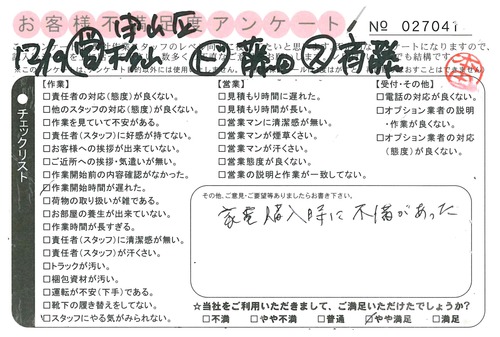 お客様不満足度アンケート
No 027041
チェックリスト
【作業】
□責任者の対応(態度)が良くない。
□他のスタッフの対応(態度)が良くない。
□作業を見ていて不安がある。
□責任者(スタッフ)に好感が持てない。
□お客様への挨拶が出来ていない。
□ご近所への挨拶・気遣いが無い。
□作業開始前の内容確認がなかった。
□作業開始時間が遅れた。
□荷物の取り扱いが雑である。
□お部屋の養生が出来ていない。
□作業時間が長すぎる。
□責任者(スタッフ)に清潔感が無い。
□責任者(スタッフ)が汗くさい。
□トラックが汚い。
□梱包資材が汚い。
□運転が不安(下手)である。
□靴下の履き替えをしてない。
□スタッフにやる気がみられない。
【営業】
□見積もり時間に遅れた。
□見積もり時間が長い。
□営業マンに清潔感が無い。
□営業マンが煙草くさい。
□営業マンが汗くさい。
□営業態度が良くない。
□営業の説明と作業が一致してない。
【受付・その他】
□電話の対応が良くない。
□オプション業者の説明
・作業が良くない。
□オプション業者の対応
(態度)が良くない。
その他、ご意見・ご要望等ありましたらお書き下さい。
家電購入時に不備があった
☆当社をご利用いただきまして、ご満足いただけたでしょうか?
□不満 □やや不満 □普通 □やや満足 □満足